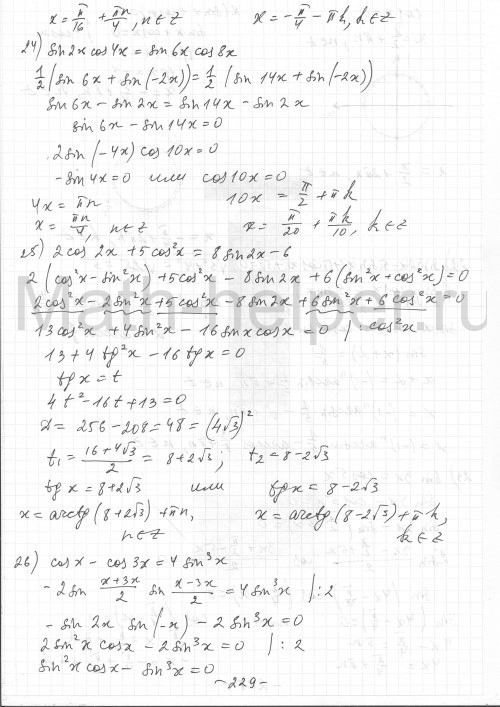 x = π/16 + πn/4, n ∈ Z    x = -π/4 - πk, k ∈ Z
24) sin 2x cos 4x = sin 6x cos 8x
1/2 (sin 6x + sin(-2x)) = 1/2 (sin 14x + sin(-2x))
sin 6x - sin 2x = sin 14x - sin 2x
sin 6x - sin 14x = 0
2 sin(-4x) cos 10x = 0
- sin 4x = 0 или cos 10x = 0
4x = πn    10x = π/2 + πk
x = πn/4, n ∈ Z    x = π/20 + πk/10, k ∈ Z
25) 2 cos 2x + 5 cos²x = 8 sin 2x - 6
2 (cos²x - sin²x) + 5cos²x - 8 sin 2x + 6 (sin²x + cos²x) = 0
2cos²x - 2sin²x + 5cos²x - 8 sin 2x + 6 sin²x + 6 cos²x = 0
Math-helper.ru
13 cos²x + 4 sin²x - 16 sin x cos x = 0 | : cos²x
13 + 4 tg²x - 16 tg x = 0
tg x = t
4t² - 16t + 13 = 0
D = 256 - 208 = 48 = (4√3)²
t₁ = (16 + 4√3)/2 = 8 + 2√3; t₂ = 8 - 2√3
tg x = 8 + 2√3 или tg x = 8 - 2√3
x = arctg(8 + 2√3) + πn,    x = arctg(8 - 2√3) + πk,
n ∈ Z    k ∈ Z
26) cos x - cos 3x = 4 sin³x
- 2 sin (x+3x)/2 sin (x-3x)/2 = 4 sin³x | : 2
- sin 2x sin(-x) - 2 sin³x = 0
2 sin²x cos x - 2 sin³x = 0 | : 2
sin²x cos x - sin³x = 0
- 229 -